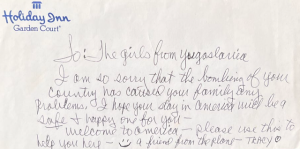 Holiday Inn
Garden Court
To: The girls from Yugoslavia
I am so sorry that the bombing of your
country has caused your family any
problems. I hope your stay in america will be a
safe + happy one for you —
Welcome to america — please use this to
help you here — a friend from the plane — TRACY